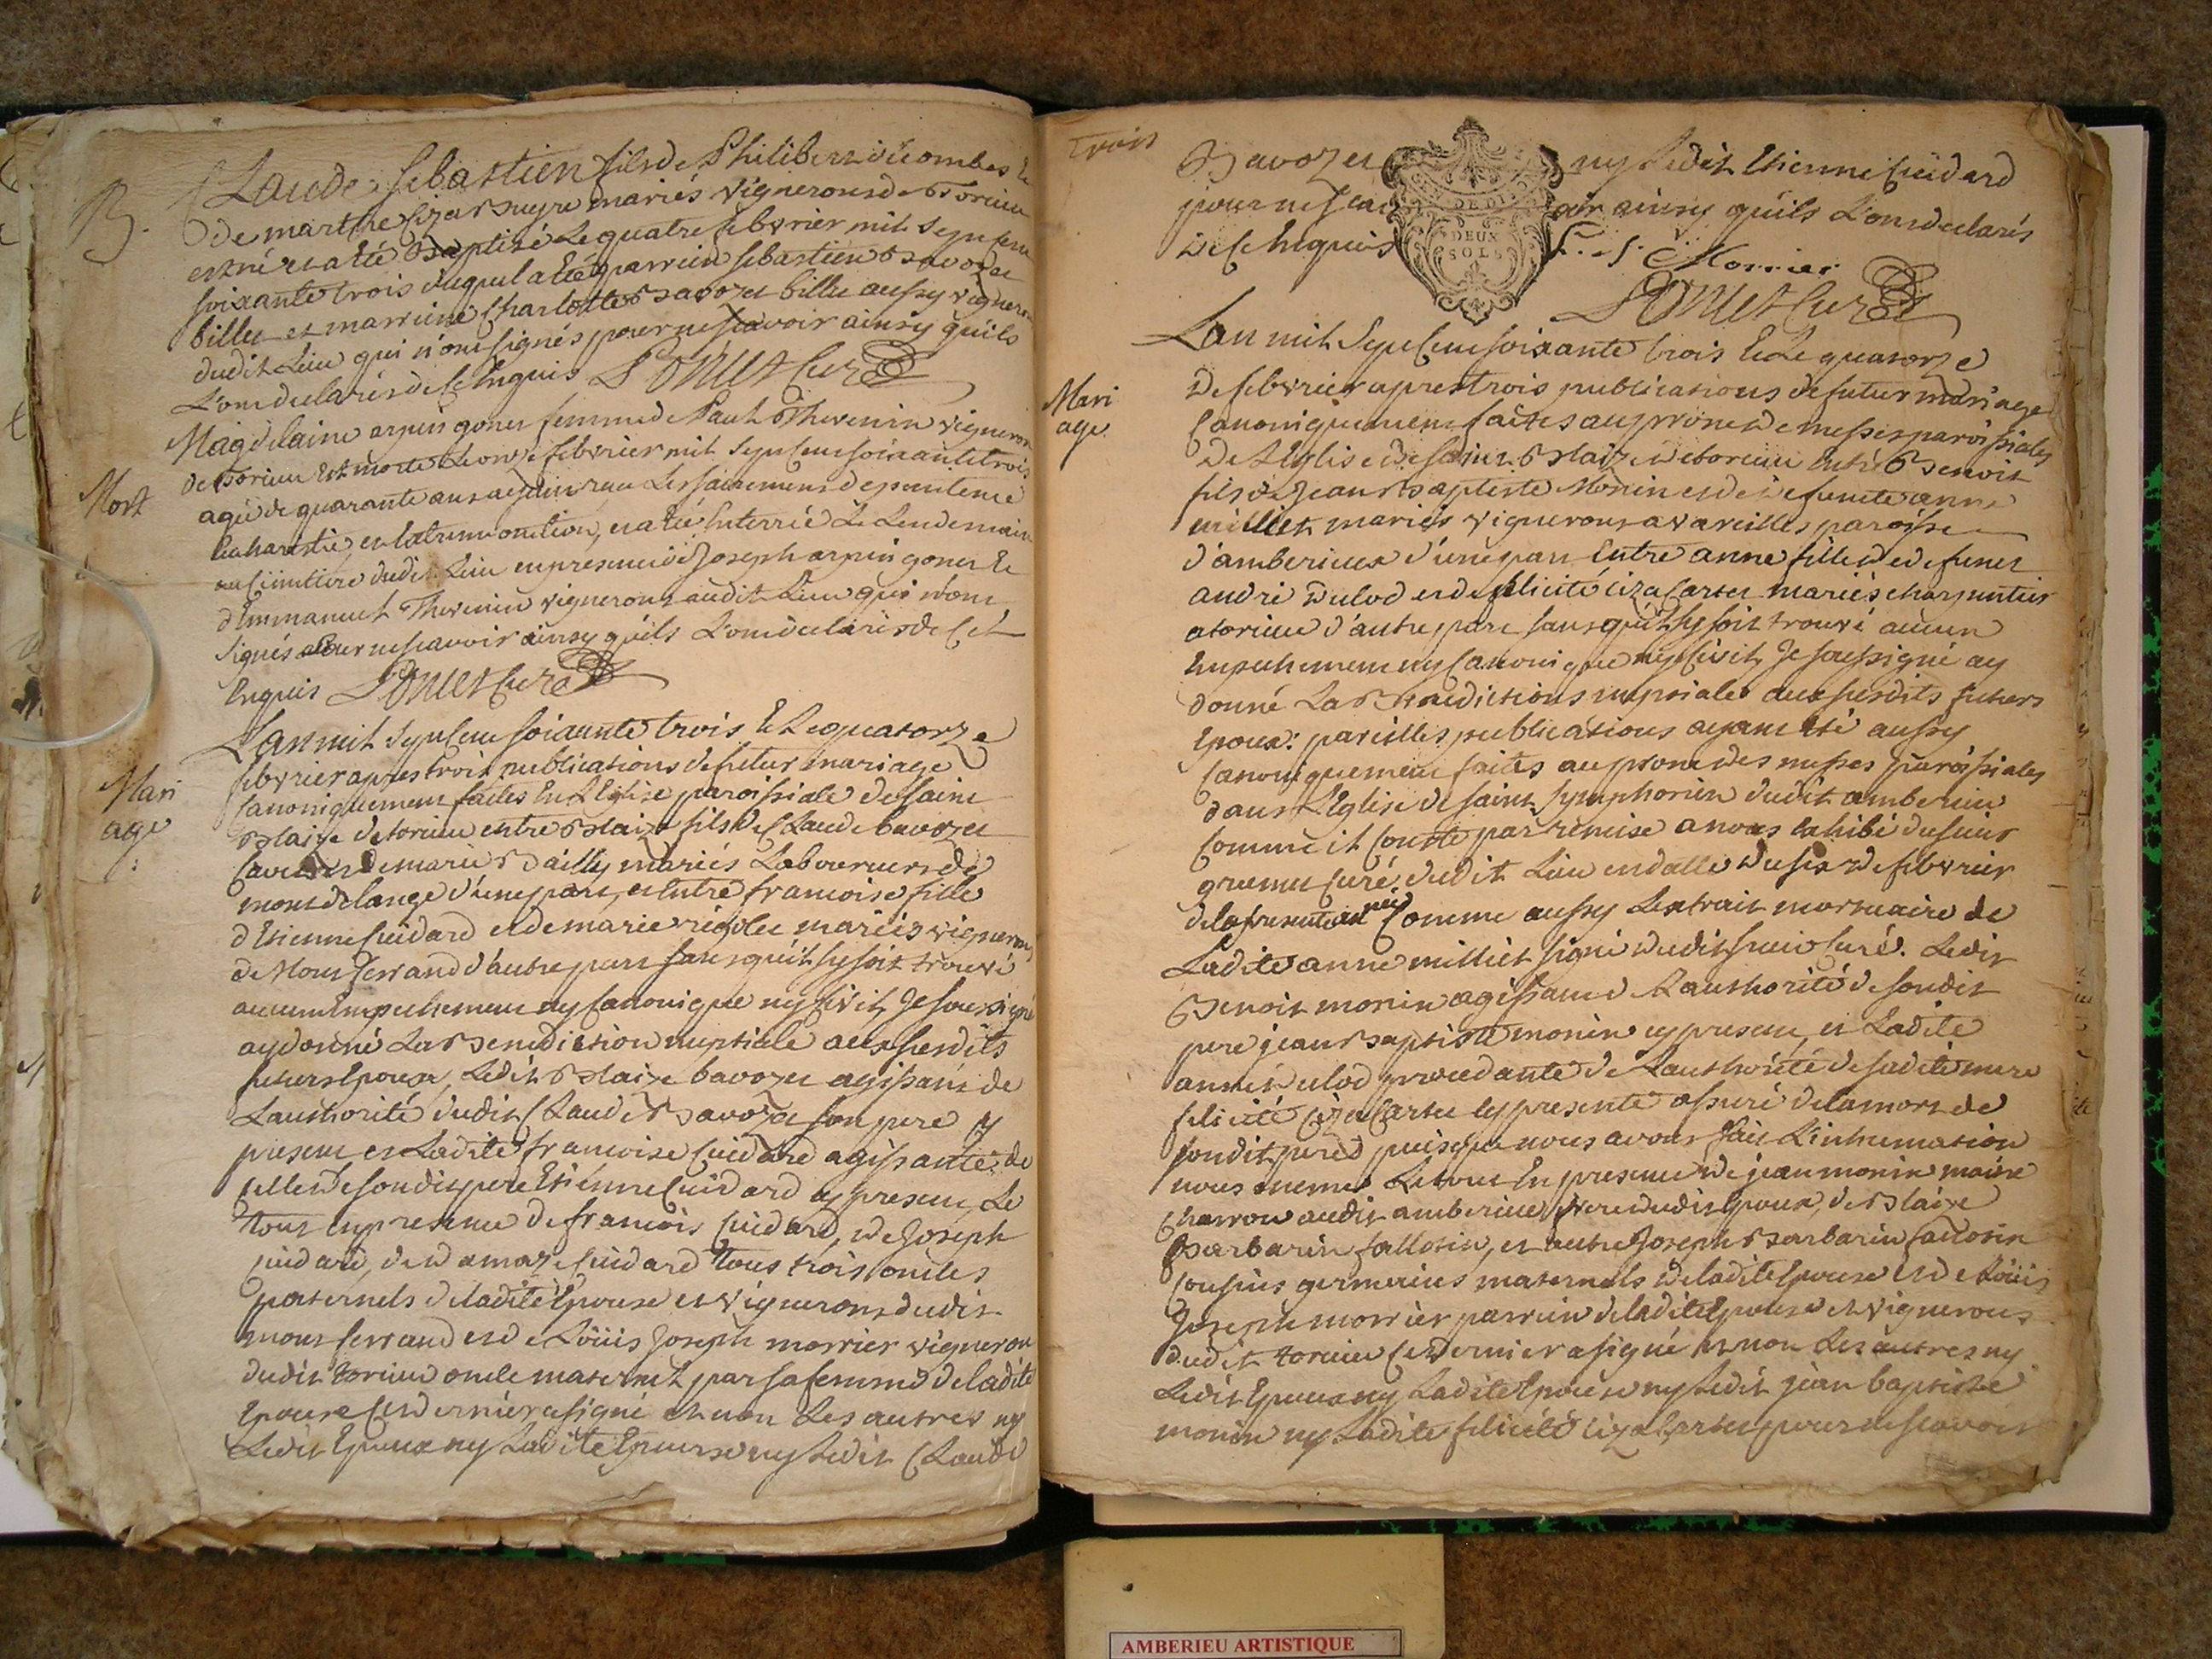 B.
Claude Sebastien fils de Philibert décombes Et
de marthe mariés vignerons de Torcieu
est né et a été Baptizé Le quatre febvrier mil sept cent
soixante trois duquel a été parrein sebastien Bavozet
billu et marreine Charlotte Bavozet billu aussy vignerons
dudit Lieu qui n'ont signés pour ne scavoir ainsy quils
L'ont declarés de ce Enquis Curé
Mort
Magdelaine arpin gonet femme de Paul Thevenin vigneron
de Torcieu Est morte Le onze febvrier mil sept cent soixante trois
agée de quarante ans reçu Les sacremens de penitence
Eucharistie, et Extreme onction, et a été Enterrée Le Lendemain
au Cimitiere dudit Lieu en presence de Joseph arpin gonet Et
d'Emmanuel Thevenin vignerons audit Lieu qui n'ont
signés pour ne scavoir ainsy quils L'ont declarés de Ce
Enquis Curé
Mari
age
:
L'an mil sept cent soixante trois Et Le quatorze
febvrier apres trois publications de futur mariage
Canoniquement faites En L'Eglise paroissiale de saint
Blaize de torcieu entre Blaize fils de Claude bavozet
et de marie Bailly mariés Laboureurs de
mont de lange d'une part, et Entre francoise fille
d'Etienne Cuidard et de marie mariés vignerons
de Montferrand d'autre part sans quil sy soit trouvé
aucun Empechement ny Canonique ny Civil, Je soussigné
ay donné La Benediction nuptiale aux susdits
futurs Epoux, Ledit Blaize bavozet agissant de
Lauthorité dudit Claude Bavozet son pere cy
present et Ladite francoise Cuidard agissante de
celle de sondit pere Etienne Cuidard cy present, Le
tout en presence de francois Cuidard, de Joseph
Cuidard, de damaze Cuidard tous trois oncles
paternels de ladite Epouse et vignerons dudit
montferrand et de Loüis Joseph morrier vigneron
dudit torcieu oncle maternel par sa femme de ladite
Epouse Ce dernier a signé et non Les autres ny
Ledit Epoux ny Ladite Epouse ny Ledit Claude
Trois
Bavozet ny Ledit Etienne Cuidard
pour ne scavoir ainsy quils L'ont declarés
de Ce Enquis L. J. Morrier
DE DI
DEUX
SOLS
Curé
Mari
age
L'an mil sept cent soixante trois Et Le quatorze
de febvrier apres trois publications de futur mariage
Canoniquement faites au prone de messes paroissiales
de L'Eglise de saint Blaize de torcieu Entre Benoit
fils de Jean Baptiste Monin et de defuncte anne
milliet mariés vignerons a vareilles paroisse
d'amberieux d'une part Entre anne fille de defunct
andré dulod et de félicité mariés charpentier
a torcieu d'autre part sans quil sy soit trouvé aucun
Empechement ny Canonique ny Civil, Je soussigné ay
donné La Benediction nuptiale aux susdits futurs
Epoux: pareilles publications ayant été aussy
Canoniquement faites au prone des messes paroissiales
dans L'Eglise de saint symphorien dudit amberieu
Comme il Conste par remise a nous exhibé du sieur
gremet Curé dudit Lieu en datte du six de febvrier
de la presente année Comme aussy Lextrait mortuaire de
Ladite anne milliet signé dudit sieur Curé. Ledit
Benoit monin agissant de Lauthorité de sondit
pere jean Baptiste monin cy present, et Ladite
anne dulod procedante de Lauthorité de sadite mere
felicité cy presente assuré de la mort de
sondit pere puisque nous avons fait L'inhumation
nous meme Le tout En presence de jean monin maitre
Charron audit amberieu frere dudit Epoux, de Blaize
Barbarin fallotin, et autre Joseph Barbarin fallotin
Cousins germains maternels de ladite Epouse et de Loüis
Joseph morrier parrein de ladite Epouse et vignerons
dudit torcieu Ce dernier a signé et non Les autres ny
Ledit Epoux ny Ladite Epouse ny Ledit jean baptiste
monin ny Ladite felicité pour ne scavoir
AMBERIEU ARTISTIQUE